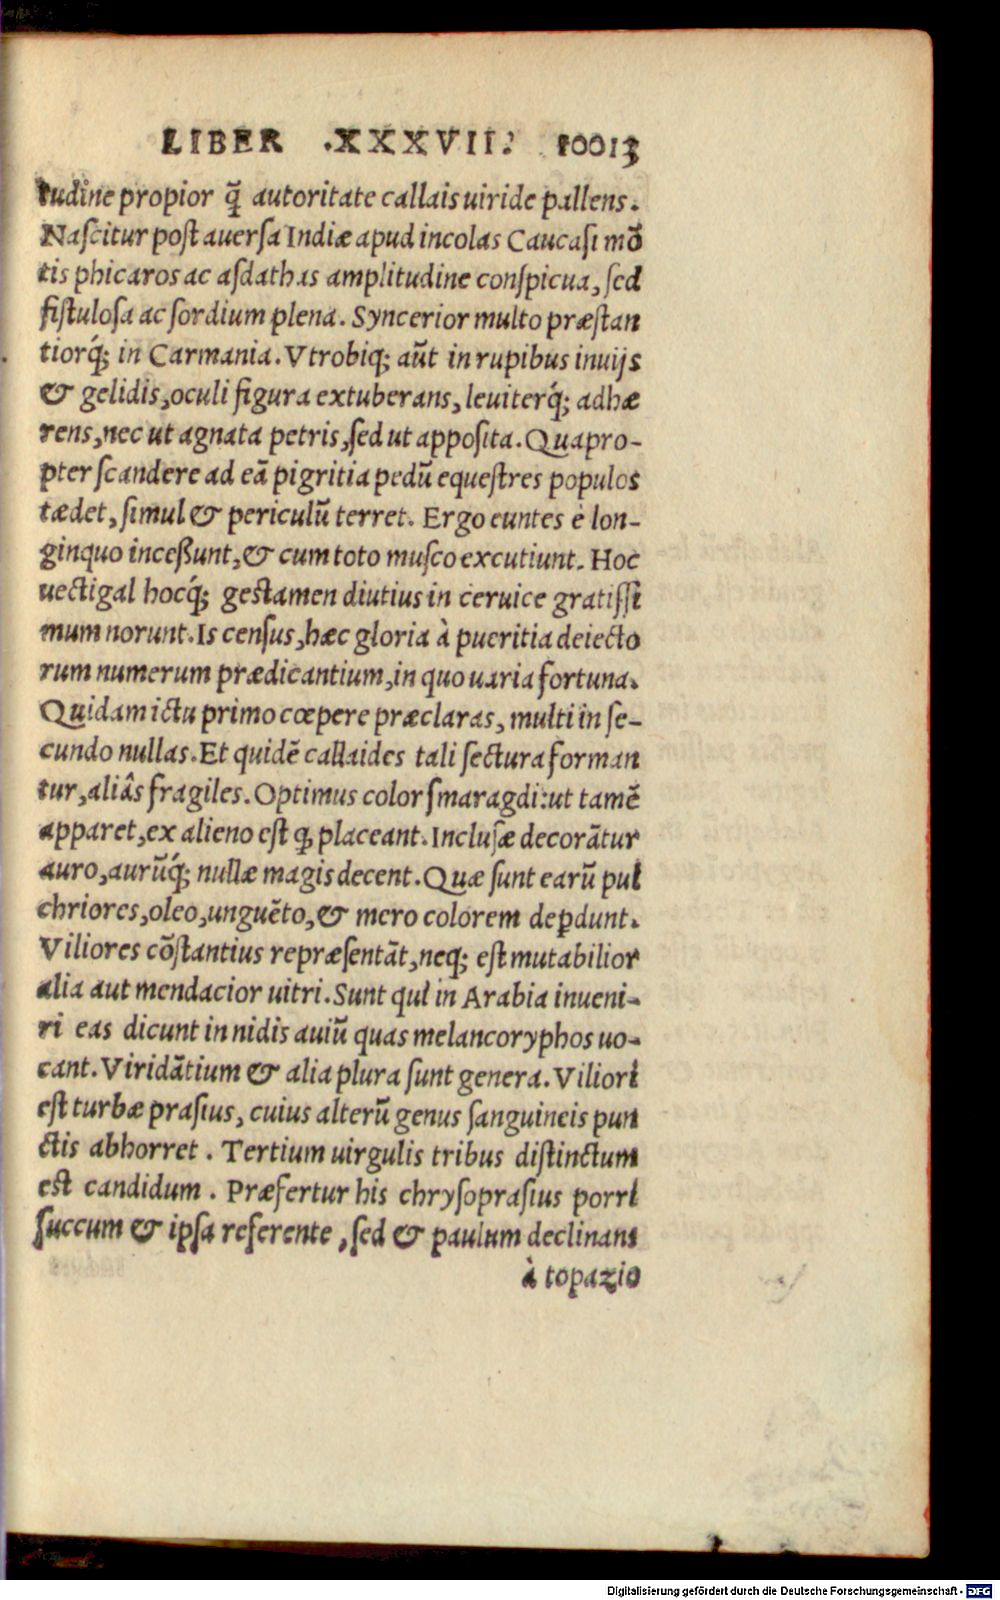 LIBER .XXXVII. 10013
tudine propior q̃ autoritate callais uiride pallens.
Nascitur post auersa Indiæ apud incolas Caucasi mõ
tis phicaros ac asdathas amplitudine conspicua, sed
fistulosa ac sordium plena. Syncerior multo præstan
tiorq́; in Carmania. Vtrobiq; aũt in rupibus inuijs
& gelidis, oculi figura extuberans, leuiterq́; adhæ
rens, nec ut agnata petris, sed ut apposita. Quapro-
pter scandere ad eã pigritia pedũ equestres populos
tædet, simul & periculũ terret. Ergo euntes è lon-
ginquo inceßunt, & cum toto musco excutiunt. Hoc
uectigal hocq́; gestamen diutius in ceruice gratissi
mum norunt. Is census, hæc gloria à pueritia deiecto
rum numerum prædicantium, in quo uaria fortuna.
Quidam ictu primo cœpere præclaras, multi in se-
cundo nullas. Et quidẽ callaides tali sectura forman
tur, aliâs fragiles. Optimus color smaragdi: ut tamẽ
apparet, ex alieno est ꝙ placeant. Inclusæ decorãtur
auro, aurũq́; nullæ magis decent. Quæ sunt earũ pul
chriores, oleo, unguẽto, & mero colorem deꝑdunt.
Viliores cõstantius repræsentãt, neq; est mutabilior
alia aut mendacior uitri. Sunt qui in Arabia inueni-
ri eas dicunt in nidis auiũ quas melancoryphos uo-
cant. Viridãtium & alia plura sunt genera. Viliori
est turbæ prasius, cuius alterũ genus sanguineis pun
ctis abhorret. Tertium uirgulis tribus distinctum
est candidum. Præfertur his chrysoprasius porri
succum & ipsa referente, sed & paulum declinans
à topazio
Digitalisierung gefördert durch die Deutsche Forschungsgemeinschaft - DFG